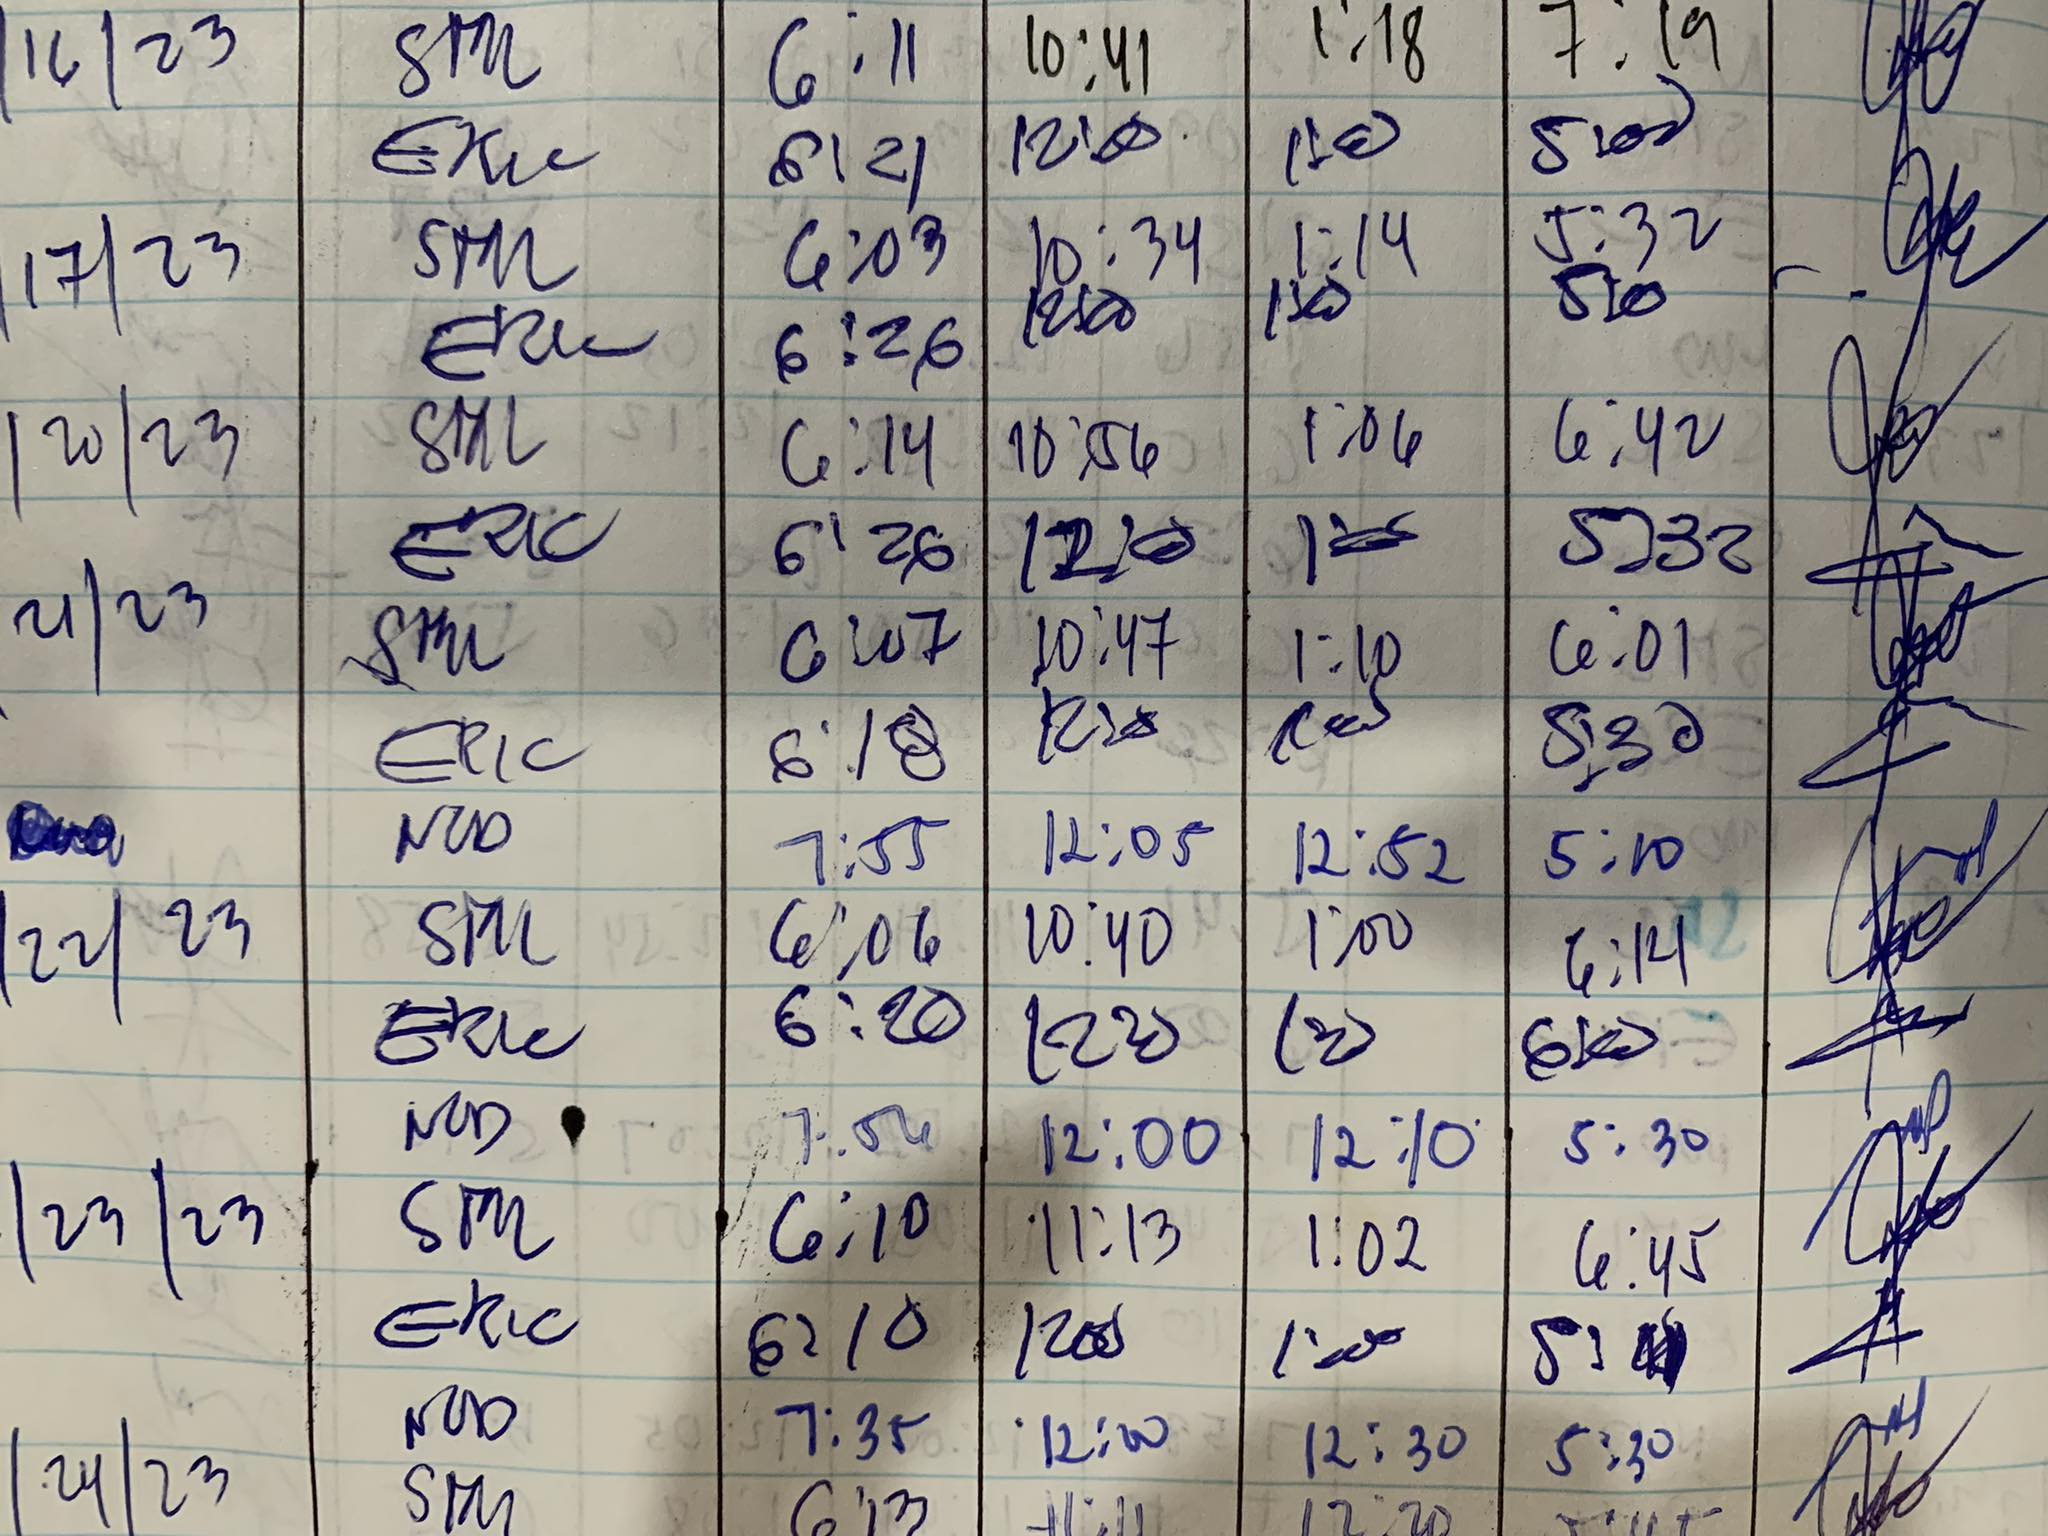 /16/23 STM 6:11 10:41 1:18 7:19
ERIC 6:21 12:00 1:00 5:00
/17/23 STM 6:03 10:34 1:14 5:32
ERIC 6:26 12:00 1:00
/20/23 STM 6:14 10:56 1:06 6:42
ERIC 6:26 1:00 5:32
21/23 STM 6:07 10:47 1:10 6:01
ERIC 6:18 5:30
NOD 7:55 12:05 12:52 5:10
/22/23 STM 6:06 10:40 1:00 6:14
ERIC 6:20 6:00
NOD 12:00 12:10 5:30
/23/23 STM 6:10 11:13 1:02 6:45
ERIC 6:10 1200 1:00
NOD 7:35 12:00 12:30 5:30
/24/23 STM 6:13